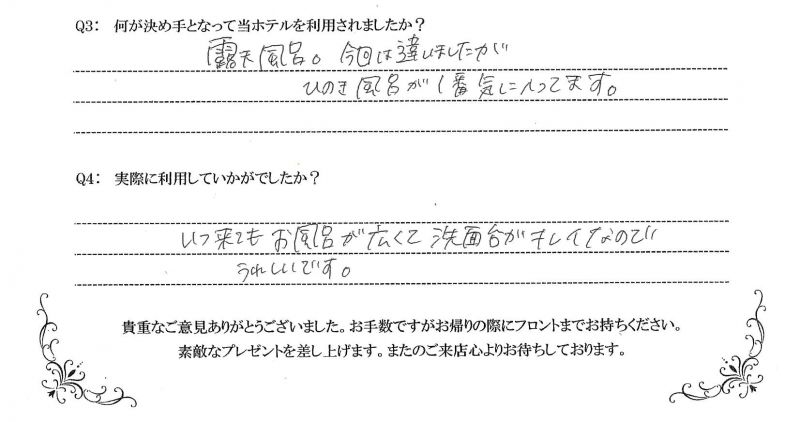 Q3: 何が決め手となって当ホテルを利用されましたか?
露天風呂。今回は違いましたが
ひのき風呂が1番気に入ってます。
Q4: 実際に利用していかがでしたか?
いつ来てもお風呂が広くて洗面台がキレイなので
うれしいです。
貴重なご意見ありがとうございました。お手数ですがお帰りの際にフロントまでお持ちください。
素敵なプレゼントを差し上げます。またのご来店心よりお待ちしております。